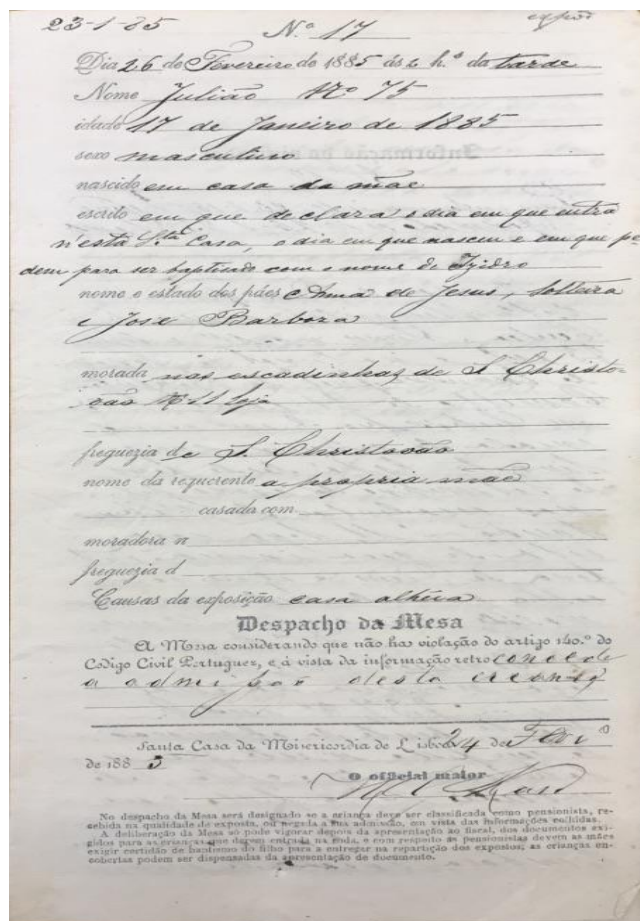 23-1-85
N.º 17
Dia 26 de Fevereiro de 1885 ás 2 h.ª da tarde
Nome Julião Nº 75
idade 17 de Janeiro de 1885
sexo masculino
nascido em casa da mãe
escrito em que declara o dia em que entra
n'esta S.ta Casa, o dia em que nasceu e em que pe-
dem para ser baptisado com o nome de Izidro
nome e estado dos páes Anna de Jesus, solteira
e José Barboza
morada nas escadinhas de S. Christo-
vão loja
freguezia de S. Christovão
nome da requerente a propria mãe
casada com
moradora n
freguezia d
Causas da exposição casa alheia
Despacho da Mesa
A Mesa considerando que não ha violação do artigo 140.º do
Codigo Civil Portuguez, e á vista da informação retro concede
a admissão desta creança
Santa Casa da Misericordia de Lisboa 24 de Fevr.º
de 1885
O official maior
No despacho da Mesa será designado se a criança deve ser classificada como pensionista, re-
cebida na qualidade de exposta, ou negada a sua admissão, em vista das informações colhidas.
A deliberação da Mesa só póde vigorar depois da apresentação ao fiscal, dos documentos exi-
gidos para as crianças que derem entrada na roda, e com respeito as pensionistas devem as mães
exigir certidão de baptismo do filho para a entregar na repartição dos expostos; as crianças en-
cobertas podem ser dispensadas da apresentação de documento.